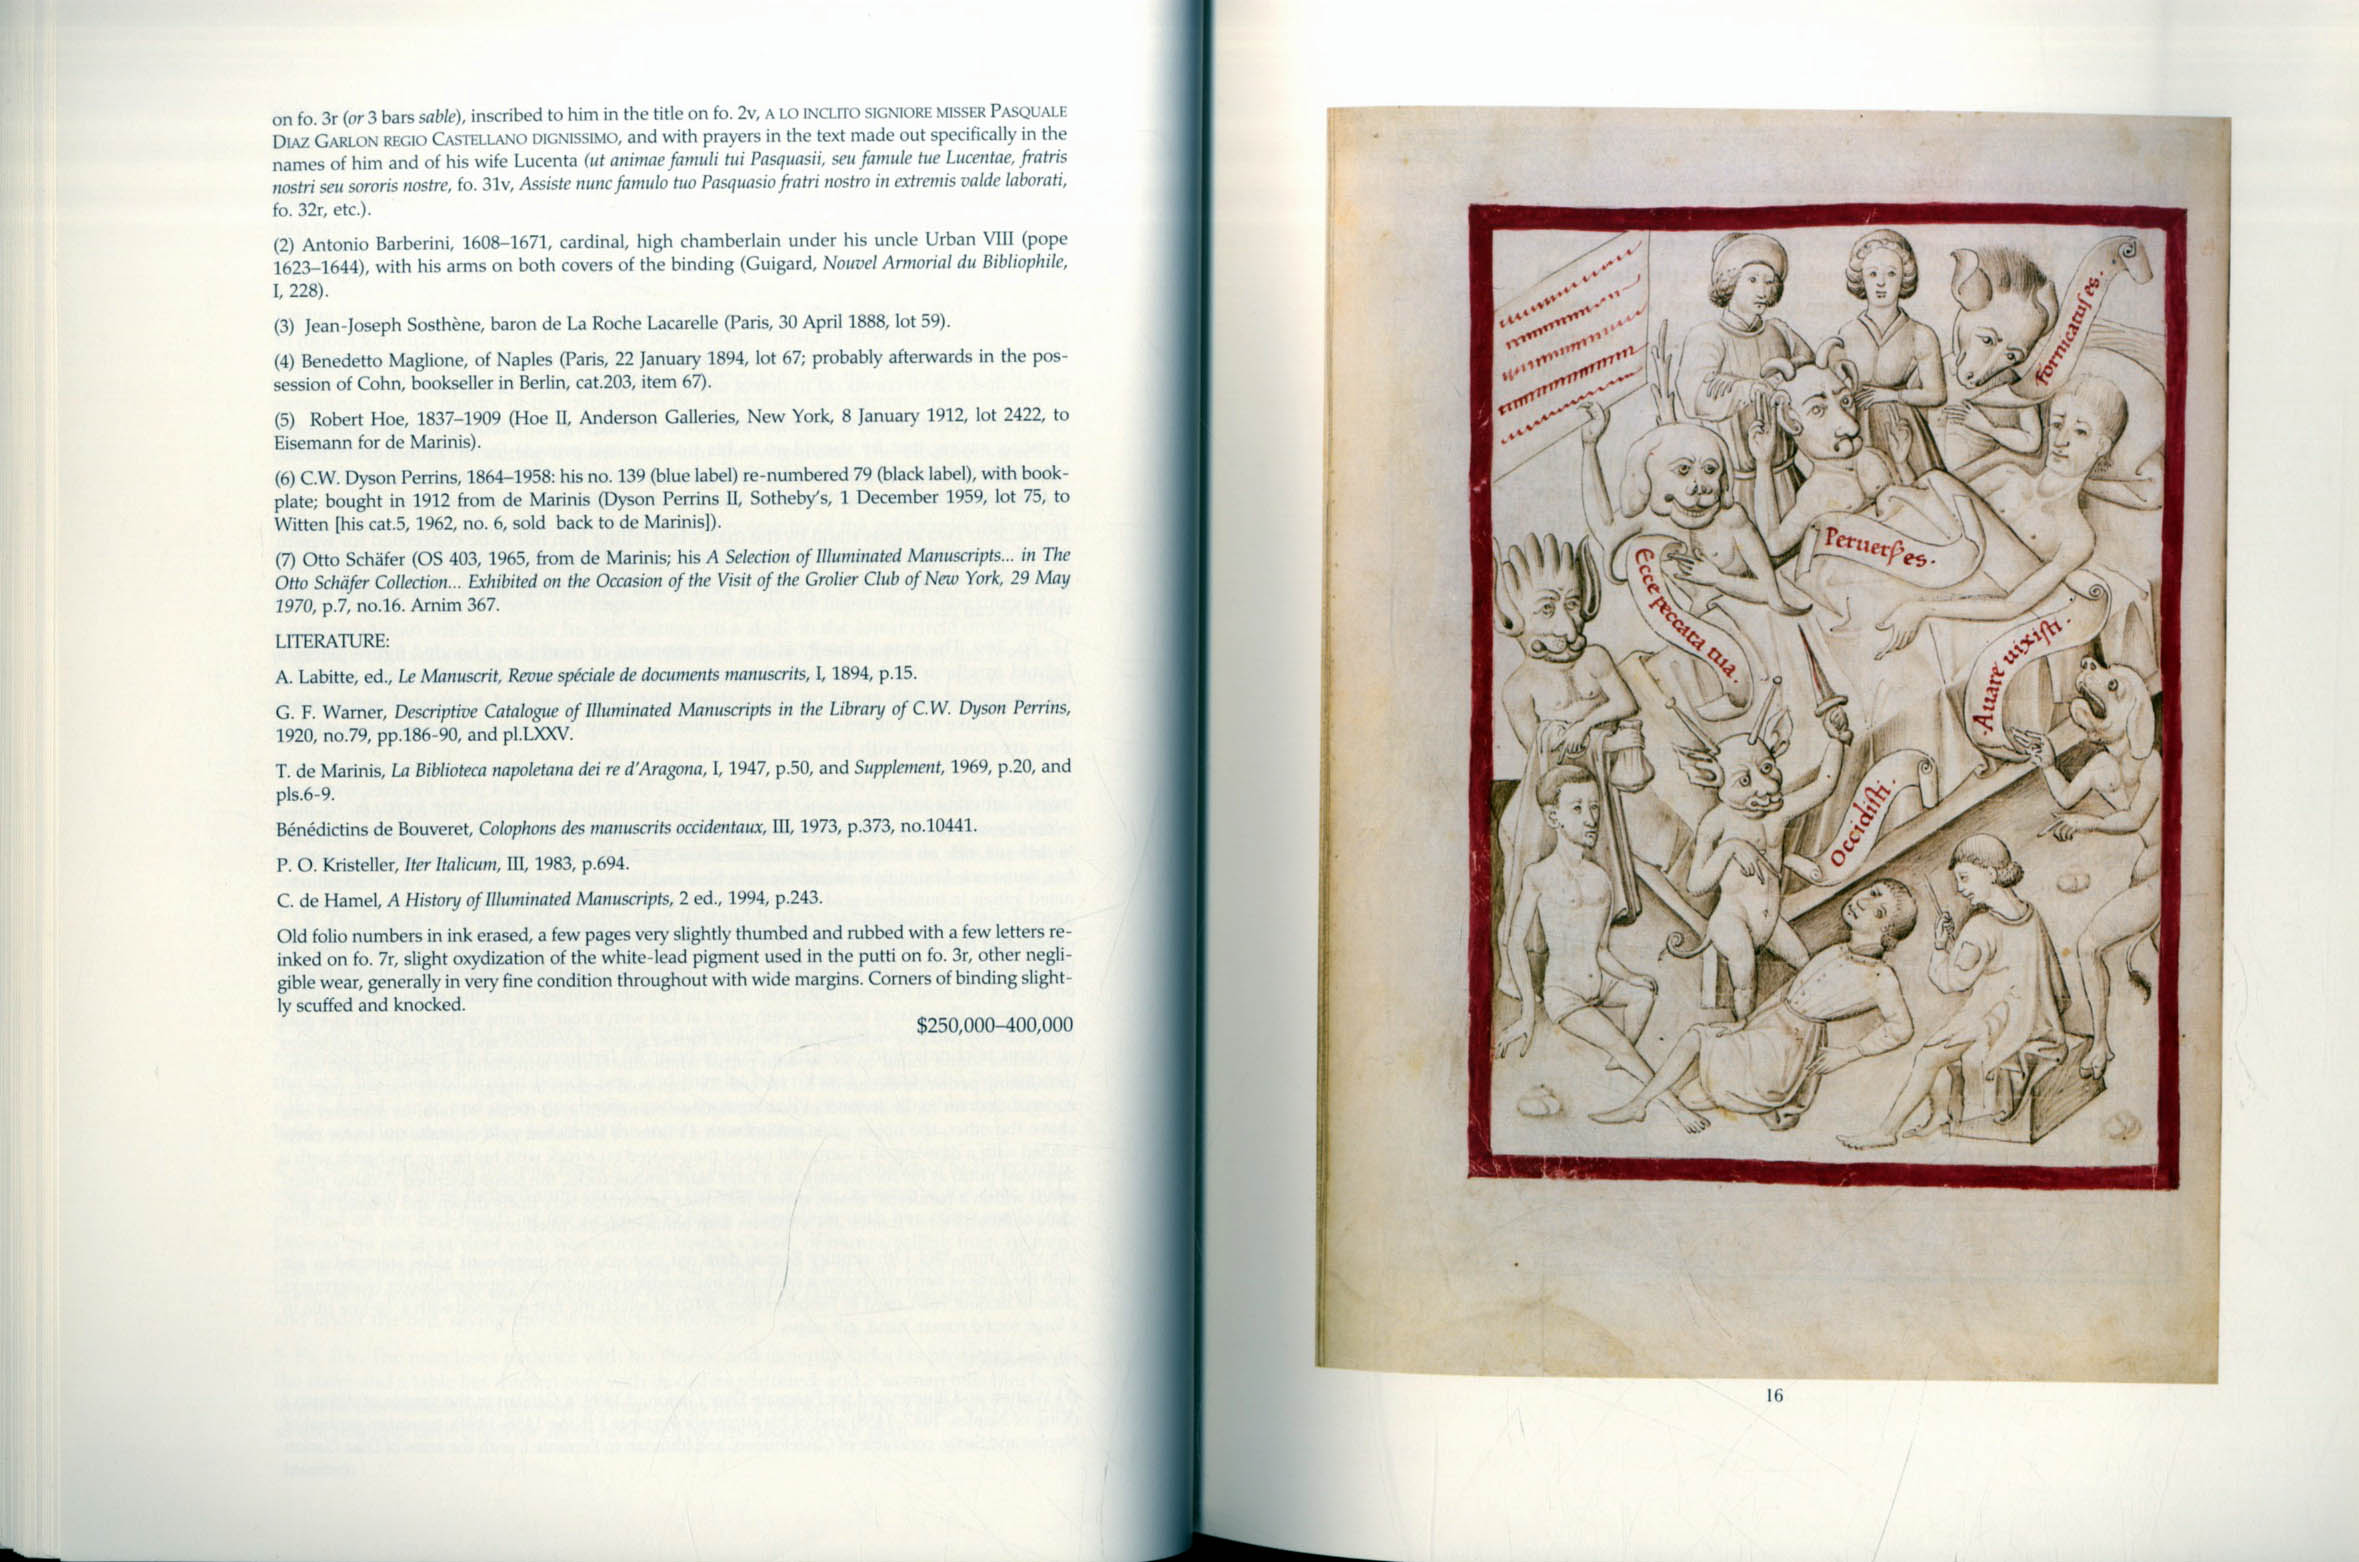 on fo. 3r (or 3 bars sable), inscribed to him in the title on fo. 2v, A LO INCLITO SIGNIORE MISSER PASQUALE
DIAZ GARLON REGIO CASTELLANO DIGNISSIMO, and with prayers in the text made out specifically in the
names of him and of his wife Lucenta (ut animae famuli tui Pasquasii, seu famule tue Lucentae, fratris
nostri seu sororis nostre, fo. 31v, Assiste nunc famulo tuo Pasquasio fratri nostro in extremis valde laborati,
fo. 32r, etc.).
(2) Antonio Barberini, 1608–1671, cardinal, high chamberlain under his uncle Urban VIII (pope
1623–1644), with his arms on both covers of the binding (Guigard, Nouvel Armorial du Bibliophile,
I, 228).
(3) Jean-Joseph Sosthène, baron de La Roche Lacarelle (Paris, 30 April 1888, lot 59).
(4) Benedetto Maglione, of Naples (Paris, 22 January 1894, lot 67; probably afterwards in the pos-
session of Cohn, bookseller in Berlin, cat.203, item 67).
(5) Robert Hoe, 1837–1909 (Hoe II, Anderson Galleries, New York, 8 January 1912, lot 2422, to
Eisemann for de Marinis).
(6) C.W. Dyson Perrins, 1864–1958: his no. 139 (blue label) re-numbered 79 (black label), with book-
plate; bought in 1912 from de Marinis (Dyson Perrins II, Sotheby's, 1 December 1959, lot 75, to
Witten [his cat.5, 1962, no. 6, sold back to de Marinis]).
(7) Otto Schäfer (OS 403, 1965, from de Marinis; his A Selection of Illuminated Manuscripts... in The
Otto Schäfer Collection... Exhibited on the Occasion of the Visit of the Grolier Club of New York, 29 May
1970, p.7, no.16. Arnim 367.
LITERATURE:
A. Labitte, ed., Le Manuscrit, Revue spéciale de documents manuscrits, I, 1894, p.15.
G. F. Warner, Descriptive Catalogue of Illuminated Manuscripts in the Library of C.W. Dyson Perrins,
1920, no.79, pp.186-90, and pl.LXXV.
T. de Marinis, La Biblioteca napoletana dei re d'Aragona, I, 1947, p.50, and Supplement, 1969, p.20, and
pls.6-9.
Bénédictins de Bouveret, Colophons des manuscrits occidentaux, III, 1973, p.373, no.10441.
P. O. Kristeller, Iter Italicum, III, 1983, p.694.
C. de Hamel, A History of Illuminated Manuscripts, 2 ed., 1994, p.243.
Old folio numbers in ink erased, a few pages very slightly thumbed and rubbed with a few letters re-
inked on fo. 7r, slight oxydization of the white-lead pigment used in the putti on fo. 3r, other negli-
gible wear, generally in very fine condition throughout with wide margins. Corners of binding slight-
ly scuffed and knocked.
$250,000–400,000
fornicatuſ es.
Peruerſ es.
Ecce peccata tua.
Auare uixiſti.
Occidiſti.
16